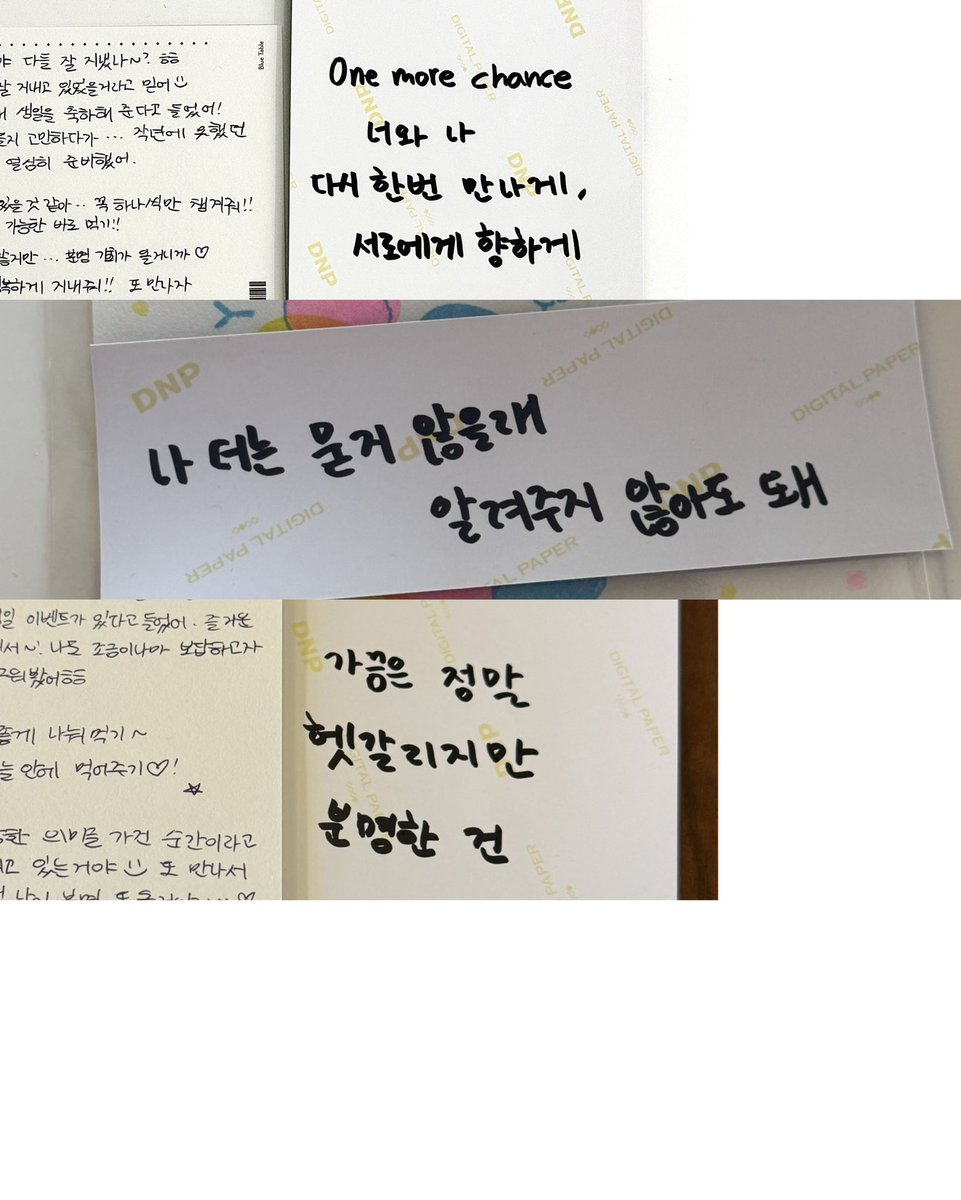 다들 잘 지냈나~? ㅎㅎ
잘 지내고 있었을거라고 믿어
생일을 축하해 준다고 들었어!
고민하다가... 작년에 못했던
열심히 준비했어.
있을 것 같아.. 꼭 하나씩만 챙겨줘!!
가능한 바로 먹기!!
... 분명 기회가 올거니까 ♡
지내줘!! 또 만나자
Blue Table
One more chance
너와 나
다시 한번 만나게,
서로에게 향하게
DNP
DIGITAL PAPER
나 더는 묻지 않을래
알려주지 않아도 돼
이벤트가 있다고 들었어. 즐거운
나도 조금이나마 보답하고자
나눠 먹기~
안에 먹어주기♡!
의미를 가진 순간이라고
있는거야 또 만나서
가끔은 정말
헷갈리지만
분명한 건
DNP
DIGITAL PAPER